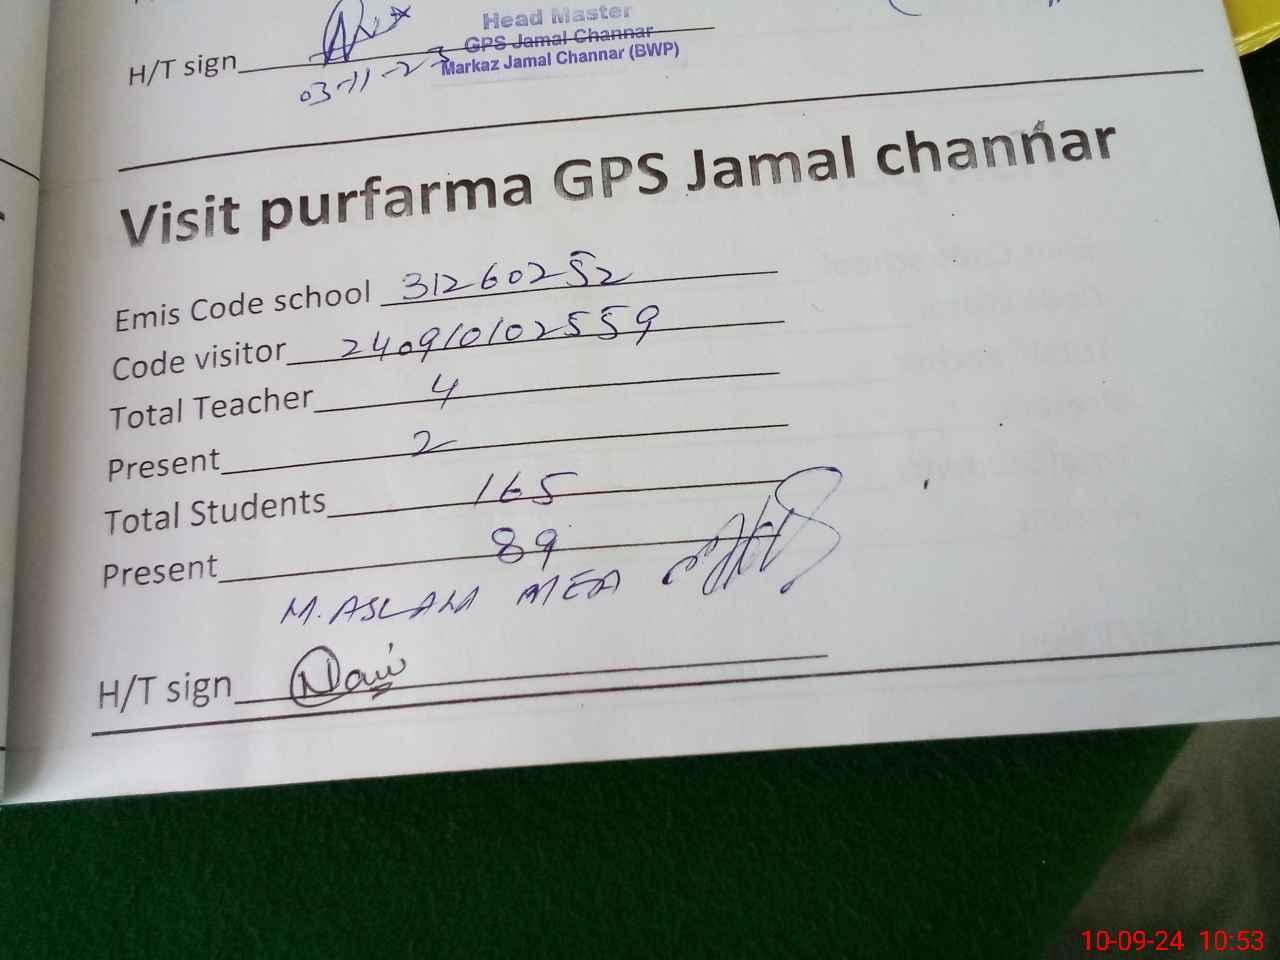 Head Master
GPS Jamal Channar
Markaz Jamal Channar (BWP)
H/T sign
03-11-23
Visit purfarma GPS Jamal channar
Emis Code school 31260252
Code visitor 240910102559
Total Teacher 4
Present 2
Total Students 165
Present 89
M. ASLAM MEA
H/T sign
10-09-24 10:53